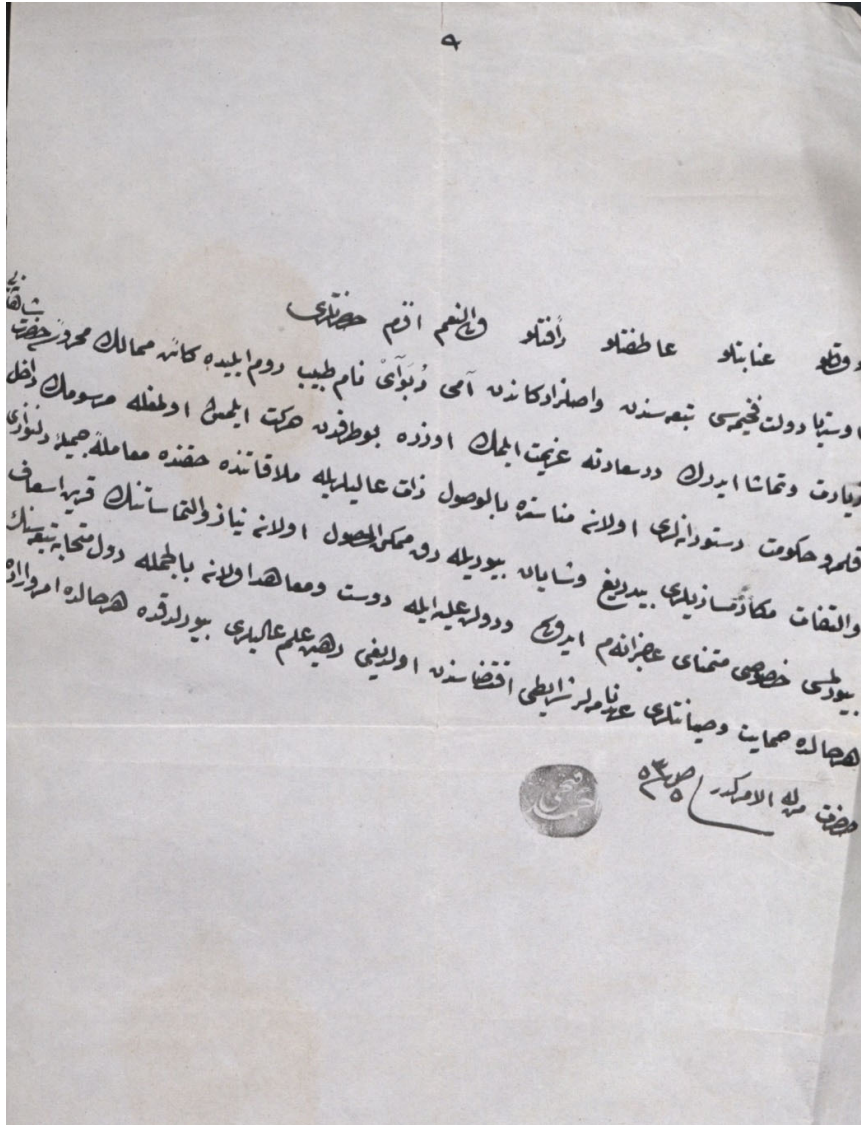 دولتلو عنایتلو عاطفتلو رأفتلو ولی النعم افندم حضرتلری
اوستریا دولت فخیمه‌سی تبعه‌سندن واصلزادکاندن آمی دبوآی نام طبیب روم ایلیده کائن ممالك محروسۀ حضرت شاهانه‌یی
زیارت وتماشا ایدرك درسعادته عزیمت ایلمك اوزره بوطرفدن حرکت ایلمش اولمغله مرسومك داخل
قلمرو حکومت دستورانه‌لری اولان مناستره بالوصول ذات عالیلریله ملاقاتنده حقنده معاملۀ جمیلۀ دلنوازی
والتفات مکارمسازیلری بیدریغ وشایان بیوریله‌رق ممکن الحصول اولان نیاز والتماساتنك قرین اسعاف
بیورلمسی خصوصی متمنای عاجزانه‌م ایدوکی ودولت علیه ایله دوست ومعاهد اولان بالجمله دول متحابه تبعه‌سنك
هرحالده حمایت وصیانتلری عهدنامه‌لر شرایطی اقتضاسندن اولدیغی رهین علم عالیلری بیورلدقده هرحالده امر واراده
حضرت من له الامرکدر